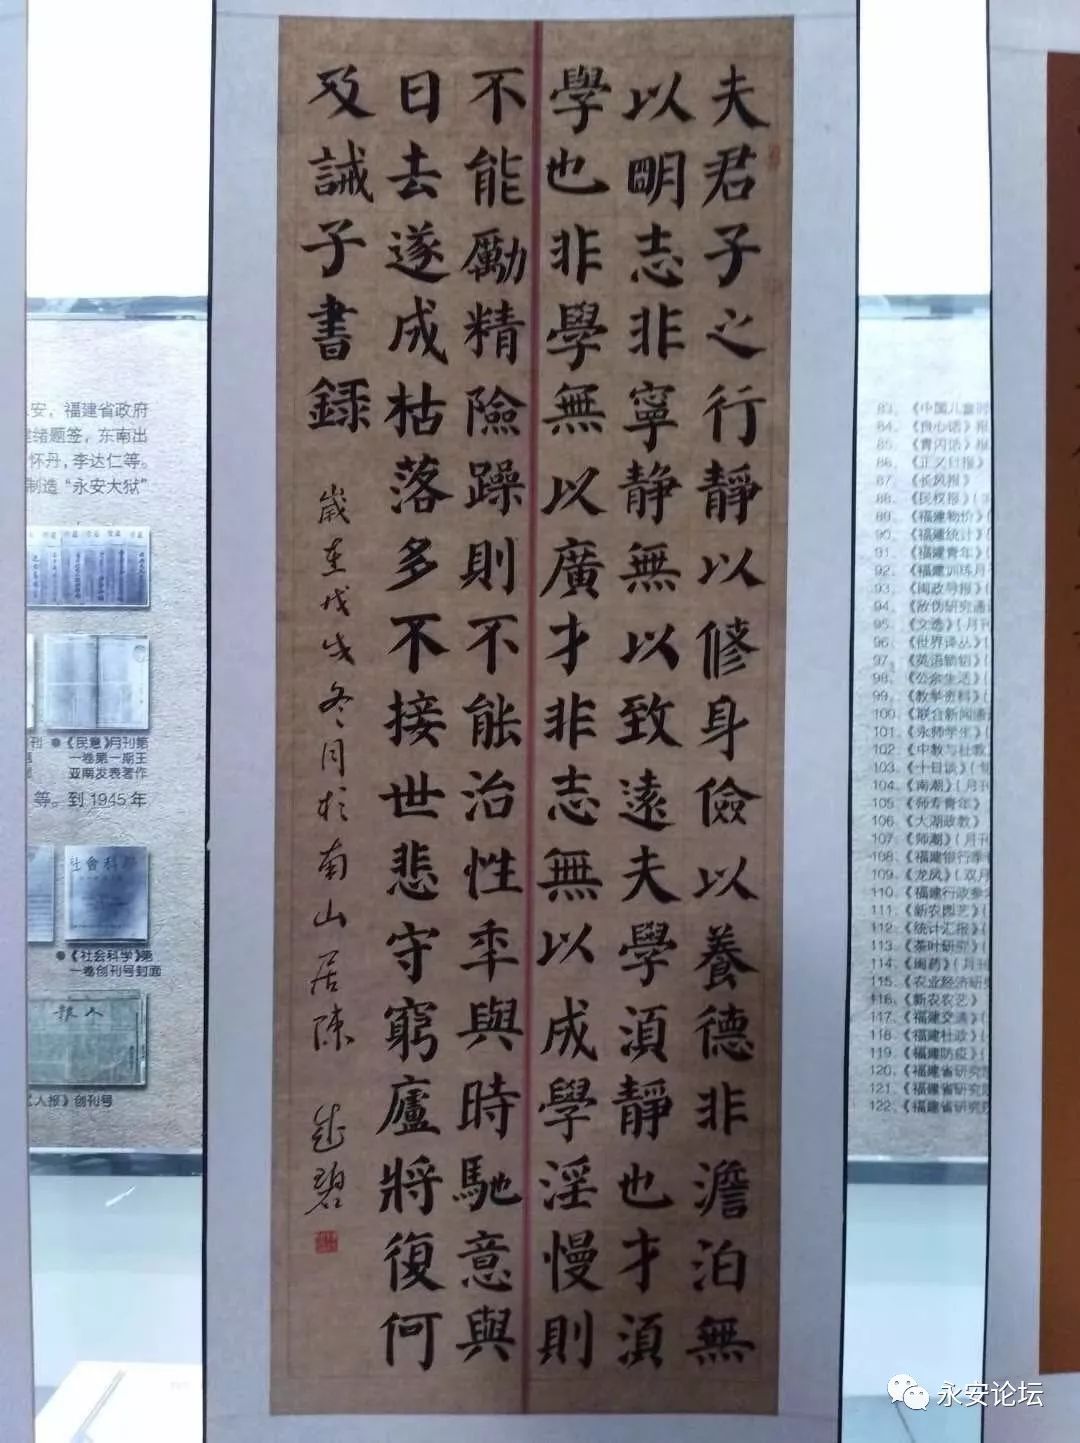 夫君子之行靜以修身儉以養德非澹泊無
以眀志非寧静無以致遠夫學須靜也才須
學也非學無以廣才非志無以成學淫慢則
不能勵精險躁則不能治性年與時馳意與
日去遂成枯落多不接世悲守窮廬將復何
及誡子書録
歲在戊戌冬月於南山居陳
安，福建省政府
绪题签，东南出
怀丹，李达仁等。
制造“永安大狱”
●《民意》月刊第
一卷第一期王
亚南发表著作
等。到1945年
社會科學
●《社会科学》第
一卷创刊号封面
報人
《人报》创刊号
83、《中国儿童时
84、《良心话》报
85、《青闪话》报
86、《正义日报》
87、《长风报》
88、《民权报》(
89、《福建物价》(
90、《福建统计》(
91、《福建青年》(
92、《福建训练月
93、《闽政导报》(
94、《敌伪研究通
95、《文选》(月刊
96、《世界译丛》(
97、《英语锁钥》(
98、《公余生活》(
99、《教学资料》(
100、《联合新闻通
101、《永师学生》(
102、《中教与社教
103、《十日谈》(旬
104、《南潮》(月刊
105、《师专青年》
106、《大湖政教》
107、《师潮》(月刊
108、《福建银行季
109、《龙凤》(双月
110、《福建行政参
111、《新农园艺》(
112、《统计汇报》(
113、《茶叶研究》(
114、《闽药》(月刊
115、《农业经济研究
116、《新农农艺》
117、《福建交通》(
118、《福建社政》(
119、《福建防疫》(
120、《福建省研究
121、《福建省研究
122、《福建省研究
永安论坛